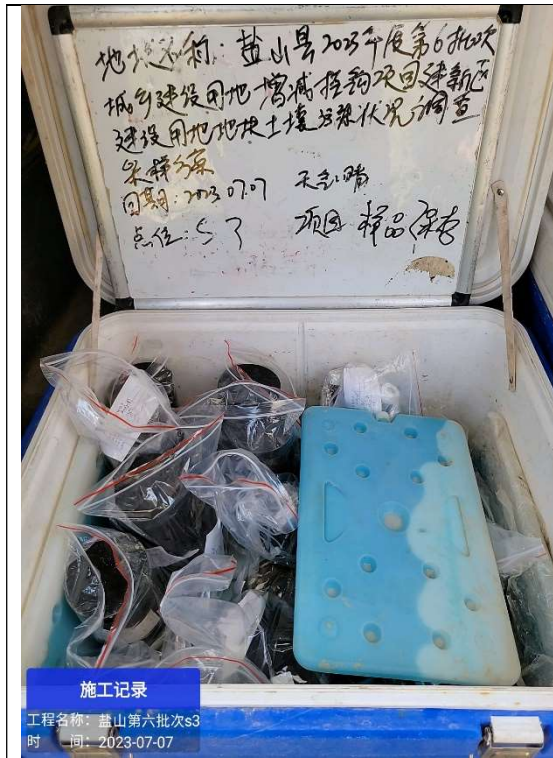 地块名称：盐山县2023年度第6批次
城乡建设用地增减挂钩项目建新区
建设用地地块土壤污染状况调查
采样方案
日期：2023 07.07 天气：晴
点位：S3 项目：样品保存
施工记录
工程名称：盐山第六批次s3
时 间：2023-07-07